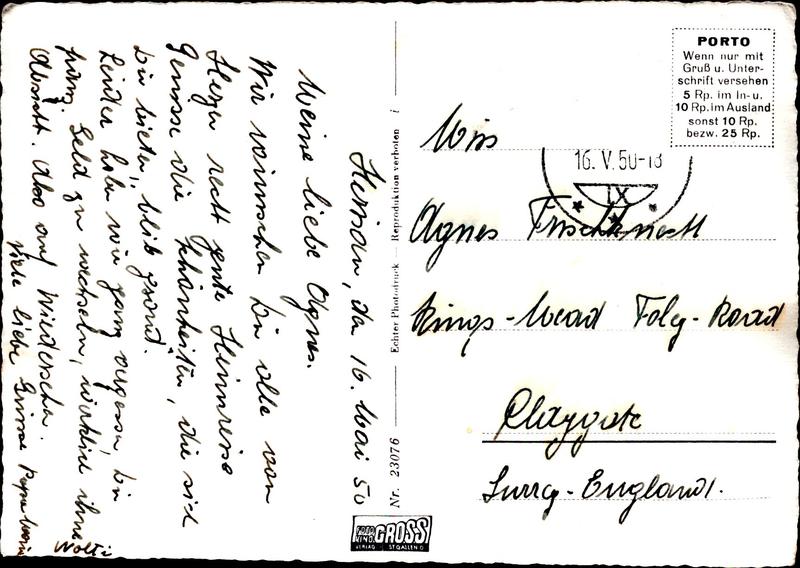 Herisau, den 16. Mai 50
Meine liebe Agnes.
Wir wünschen Dir alle von
Herzen recht gute Heimreise
Genosse die Schönheiten, die sich
Dir bieten, blib gsund.
Leider haben wir ganz vergessen Dir
franz. Geld zu wechseln, wirklich ohne
Absicht. Also auf Wiedersehn.
Viele liebe Grüsse
Wolti
Nr. 23076 — Echter Photodruck — Reproduktion verboten
FOTO GROSS
VERLAG ST GALLEN O
PORTO
Wenn nur mit
Gruß u. Unter-
schrift versehen
5 Rp. im In- u.
10 Rp. im Ausland
sonst 10 Rp.
bezw. 25 Rp.
16. V. 50-18
IX
Miss
Agnes Frischknecht
Kings-Mead Foley-Road
Claygate
Surrey-England.